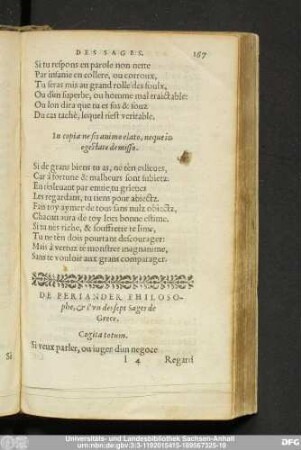 DES SAGES. 167
Si tu respons en parole non nette
Par infanie en collere, ou corroux,
Tu seras mis au grand rolle des foulx,
Ou d'un superbe, ou homme mal traictable:
Ou lon dira que tu es fin & fouz
Du cas taché, lequel n'est veritable.
In copia ne sis animo elato, neque in
egestate demisso.
Si de grans biens tu as, ne t'en esleues,
Car à fortune & malheurs sont subiectz
En esleuant par enuie tu grieues
Les regardans, tu tiens pour abiectz.
Fais toy aymer de tous sans nulz obiectz,
Chacun aura de toy lors bonne estime.
Si tu n'es riche, & souffrette te lime,
Tu ne t'en dois pourtant descourager:
Mais à vertuz te monstrer magnanime,
Sans te vouloir aux grans comparager.
DE PERIANDER PHILOSO-
phe, & l'vn des sept Sages de
Grece.
Cogita totum.
Si veux parler, ou iuger d'un negoce
I 4 Regard
Si
Universitäts- und Landesbibliothek Sachsen-Anhalt
DFG